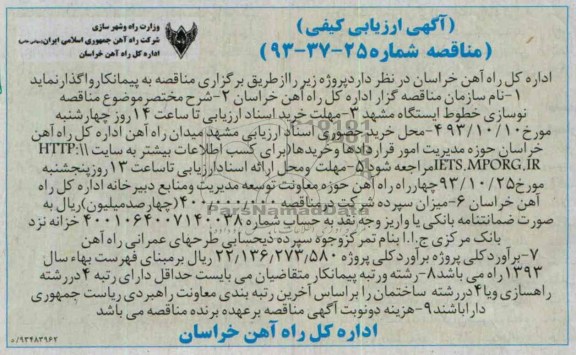 (آگهی ارزیابی کیفی)
(مناقصه شماره ۲۵-۳۷-۹۳)
وزارت راه وشهرسازی
شرکت راه آهن جمهوری اسلامی ایران(سهامی خاص)
اداره کل راه آهن خراسان
اداره کل راه آهن خراسان در نظر دارد پروژه زیر را از طریق برگزاری مناقصه به پیمانکار واگذار نماید
۱-نام سازمان مناقصه گزار اداره کل راه آهن خراسان ۲-شرح مختصر موضوع مناقصه
نوسازی خطوط ایستگاه مشهد ۳-مهلت خرید اسناد ارزیابی تا ساعت ۱۴ روز چهارشنبه
مورخ ۹۳/۱۰/۱۰ ۴-محل خرید حضوری اسناد ارزیابی مشهد میدان راه آهن اداره کل راه آهن
خراسان حوزه مدیریت امور قراردادها وخریدها(برای کسب اطلاعات بیشتر به سایت HTTP:\\
IETS.MPORG.IR مراجعه شود)۵-مهلت ومحل ارائه اسناد ارزیابی تا ساعت ۱۳ روز پنجشنبه
مورخ ۹۳/۱۰/۲۵ چهارراه راه آهن حوزه معاونت توسعه مدیریت ومنابع دبیرخانه اداره کل راه
آهن خراسان ۶-میزان سپرده شرکت در مناقصه ۴۰۰/۰۰۰/۰۰۰(چهارصدمیلیون)ریال به
صورت ضمانتنامه بانکی یا واریز وجه نقد به حساب شماره ۴۰۰۱۰۶۴۰۰۷۱۴۰۰۲۸ خزانه نزد
بانک مرکزی ج.ا.ا بنام تمرکز وجوه سپرده ذیحسابی طرحهای عمرانی راه آهن
۷-برآورد کلی پروژه برآورد کلی پروژه ۲۲/۱۳۶/۲۷۳/۵۸۰ ریال بر مبنای فهرست بهاء سال
۱۳۹۳ راه می باشد ۸-رشته ورتبه پیمانکار متقاضیان می بایست حداقل دارای رتبه ۴ در رشته
راهسازی ویا ۴ در رشته ساختمان را بر اساس آخرین رتبه بندی معاونت راهبردی ریاست جمهوری
دارا باشند ۹-هزینه دونوبت آگهی مناقصه بر عهده برنده مناقصه می باشد
اداره کل راه آهن خراسان
۰/۹۳۴۸۳۹۶۲
ParsNamadData